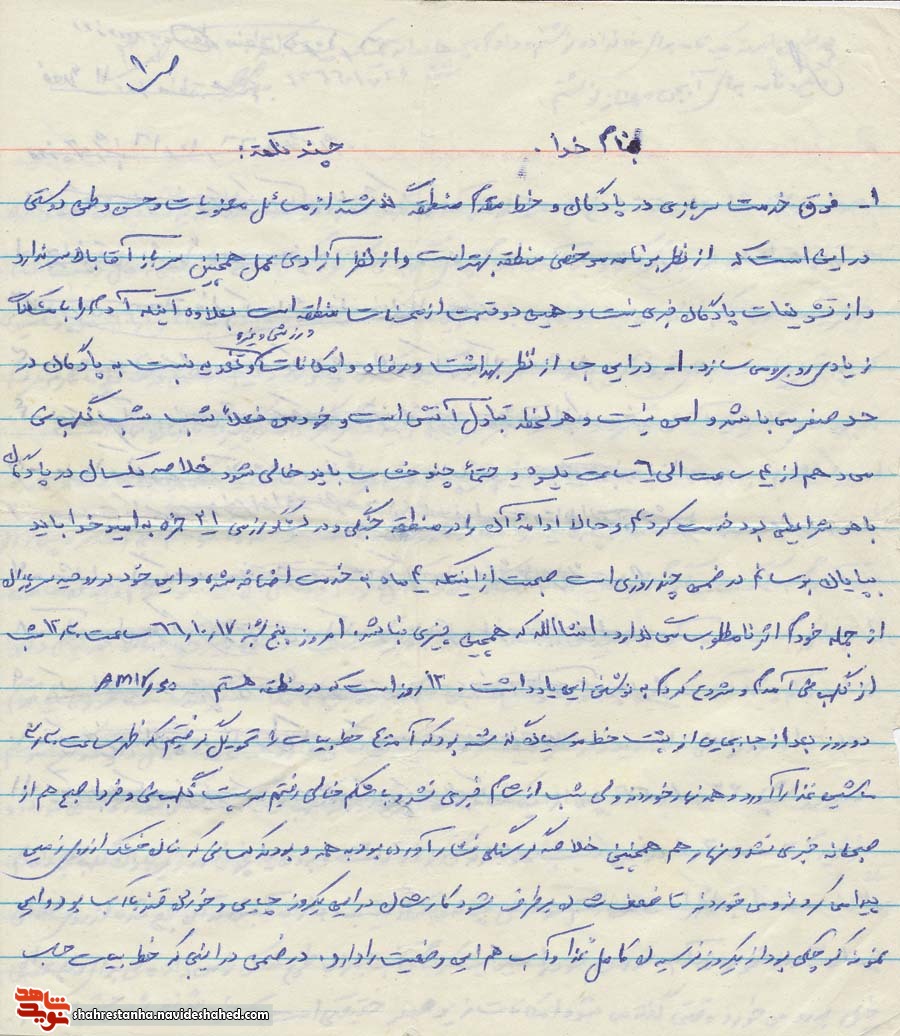 ص۱
بنام خدا. چند نکته:
۱- فرق خدمت سربازی در پادگان و خط مقدم منطقه گذشته از مسائل معنویات و حس وطن دوستی
در این است که از نظر برنامه مرخصی منطقه بهتر است و از نظر آزادی عمل همچنین سرباز آقا بالا سر ندارد
و از تشریفات پادگان خبری نیست و همین دو قسمت از محسنات منطقه است بعلاوه اینکه آدم را با مشکلات
ورزشی و غیره
زیادی روبرو می سازد. ۱- در این جا از نظر بهداشت و رفاه و امکانات و تغذیه نسبت به پادگان در
حد صفر می باشد و امن نیست و هر لحظه تبادل آتش است و خود من فعلاً شب شب نگهبانی
می دهم از ۴ ساعت الی ۶ ساعت یکسره و حتماً چند خشاب باید خالی شود خلاصه یکسال در پادگان
با هر شرایطی بود خدمت کردم و حالا ادامه آن را در منطقه جنگی و در لشکر زرهی ۲۱ حمزه به امید خدا باید
بپایان برسانم در ضمن چند روزی است صحبت از اینکه ۴ ماه به خدمت اضافه شده و این خود در روحیه سربازان
از جمله خودم اثر نامطلوب ندارد. انشاالله که همچین چیزی نباشد. امروز پنج شنبه ۶۶/۱۰/۱۷ ساعت ۱۲/۳۰ شب
از نگهبانی آمدم و شروع کردم به نوشتن این یادداشت. ۱۳ روز است که در منطقه هستم
دو روز بعد از جابجایی از پشت خط مو سیان گذشته بود که آمدیم خط بیات را تحویل گرفتیم که ظهر ساعت
ماشین غذا را آورد و همه نهار خوردند ولی شب از شام خبری نشد و با شکم خالی رفتیم سر پست نگهبانی و فردا صبح هم از
صبحانه خبری نشد و نهار هم همچنین خلاصه گرسنگی فشار آورده بود به همه و بودند کسانی که نان خشک از روی زمین
پیدا می کردند و می خوردند تا ضعف شان برطرف شود کارمان در این یکروز چایی و خوردن قند با آب بود و این
نمونه کوچکی بود از یکروز نرسیدن کامل غذا و آب هم این وضعیت را دارد. در ضمن در اینجا که خط بیات
shahrestanha.navideshahed.com
نوید شاهد